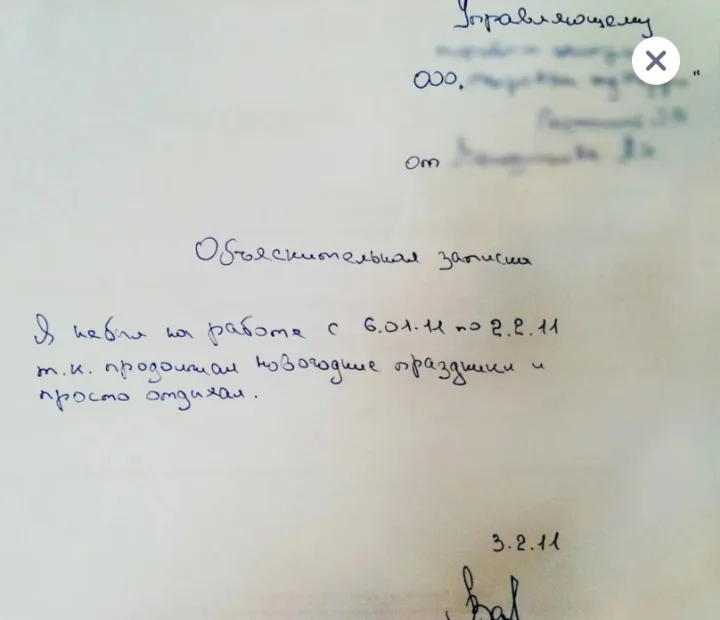 Управляющему
ООО. "
от
Объяснительная записка
Я небыл на работе с 6.01.11 по 2.2.11
т.к. продолжал новогодние праздники и
просто отдихал.
3.2.11